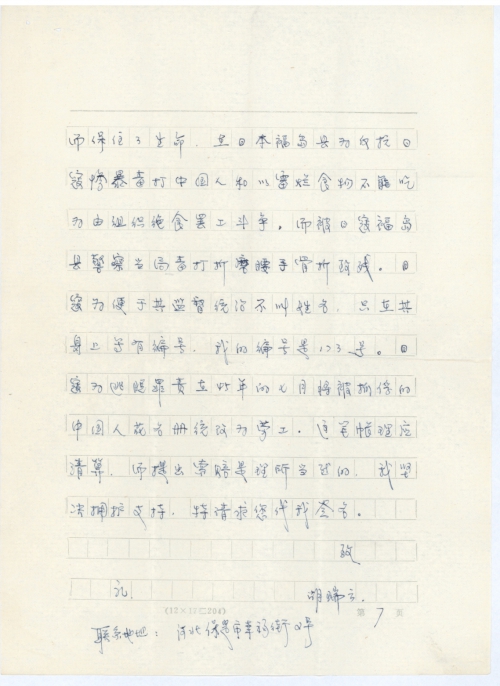 而保住了生命。在日本福岛县为反抗日
寇惨暴毒打中国人和以霉烂食物不能吃
为由组织绝食罢工斗争。而被日寇福岛
县警察当局毒打折磨腰手骨折致残。日
寇为便于其监督统治不叫姓名，只在其
身上写有编号，我的编号是123号。日
寇为逃避罪责在45年的七月将被抓俘的
中国人花名册统改为劳工。这笔帐理应
清算，而提出索赔是理所当然的，我坚
决拥护支持，特请求您代我签名。
致
礼 胡瑞云
(12×17=204) 第 7 页
联系地址: 河北保定市 街 号